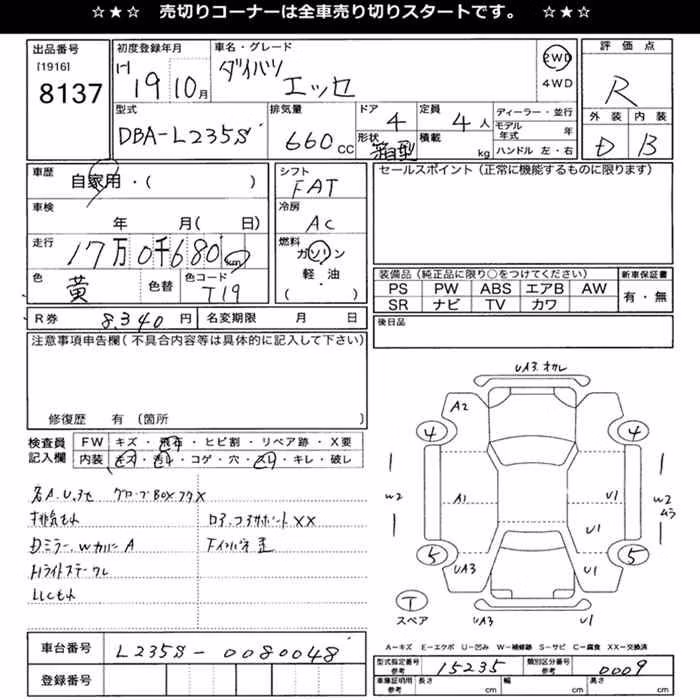 ☆★☆　売切りコーナーは全車売り切りスタートです。　☆★☆
出品番号
[1916]
8137
初度登録年月
H 19 10月
車名・グレード
ダイハツ
エッセ
2WD
4WD
評価点
R
外装 内装
D B
型式
DBA-L235S
排気量
660 cc
ドア
4
形状
箱型
定員
4人
積載
kg
ディーラー・並行
モデル年式 年
ハンドル 左・右
車歴
自家用・( )
車検
年 月( 日)
走行
17万0千680 km
色
黄
色替
色コード
T19
シフト
FAT
冷房
AC
燃料
ガソリン
軽・油
( )
R券 8,340 円
名変期限 月 日
セールスポイント（正常に機能するものに限ります）
装備品（純正品に限り○をつけてください）
PS PW ABS エアB AW
SR ナビ TV カワ
新車保証書
有・無
後日品
注意事項申告欄（不具合内容等は具体的に記入して下さい）
修復歴 有（箇所 ）
検査員
記入欄
FW キズ・飛石・ヒビ割・リペア跡・X要
内装 キズ・汚れ・コゲ・穴・スレ・キレ・破レ
各A.U.サビ グローブBOXフタX
排気もれ
コアサポートXX
Dミラー.Wカバー A
Hライトステークレ
LLCもれ
UA3.オカレ
A2
4 4
W2
A1 U1
W2
ムラ
U1
5 5
UA3 U1
T
スペア
UA3 U1
A－キズ E－エクボ U－凹み W－補修跡 S－サビ C－腐食 XX－交換済
車台番号
L235S-0080048
登録番号
型式指定番号
参考
15235
類別区分番号
参考
0009
車庫証明用
参考
長さ cm
幅 cm
高さ cm